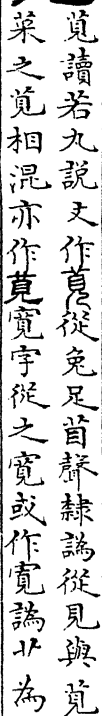 莧讀若丸說文作萈從兔足苜聲隸譌從見與莧
菜之莧相混亦作莧寬字從之寬或作寛譌卝為